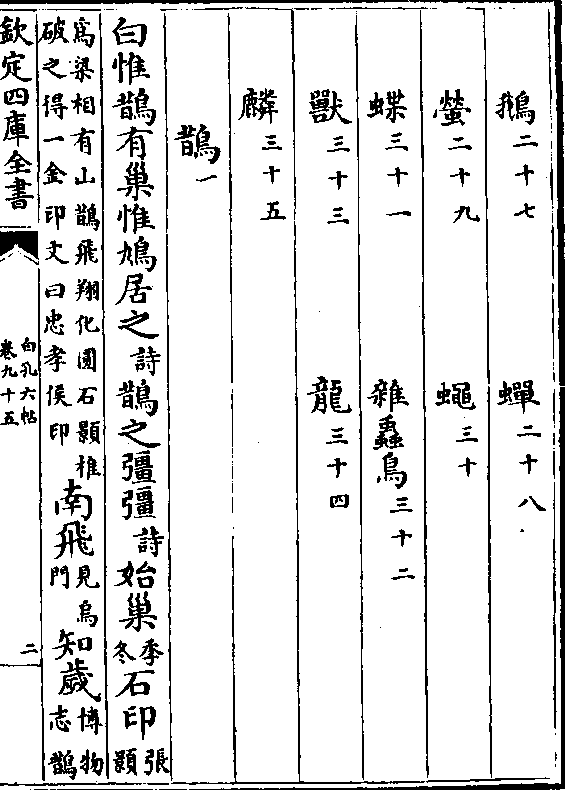 鵝二十七 蟬二十八
螢二十九 蠅三十
蝶三十一 雜蟲鳥三十二
獸三十三 龍三十四
麟三十五
鵲一
白惟鵲有巢惟鳩居之詩鵲之彊彊詩始巢季冬石印張顥
爲梁相有山鵲飛翔化圓石顥椎破之得一金印文曰忠孝侯印南飛見烏門知歲博物志鵲
欽定四庫全書
白孔六帖
卷九十五
二